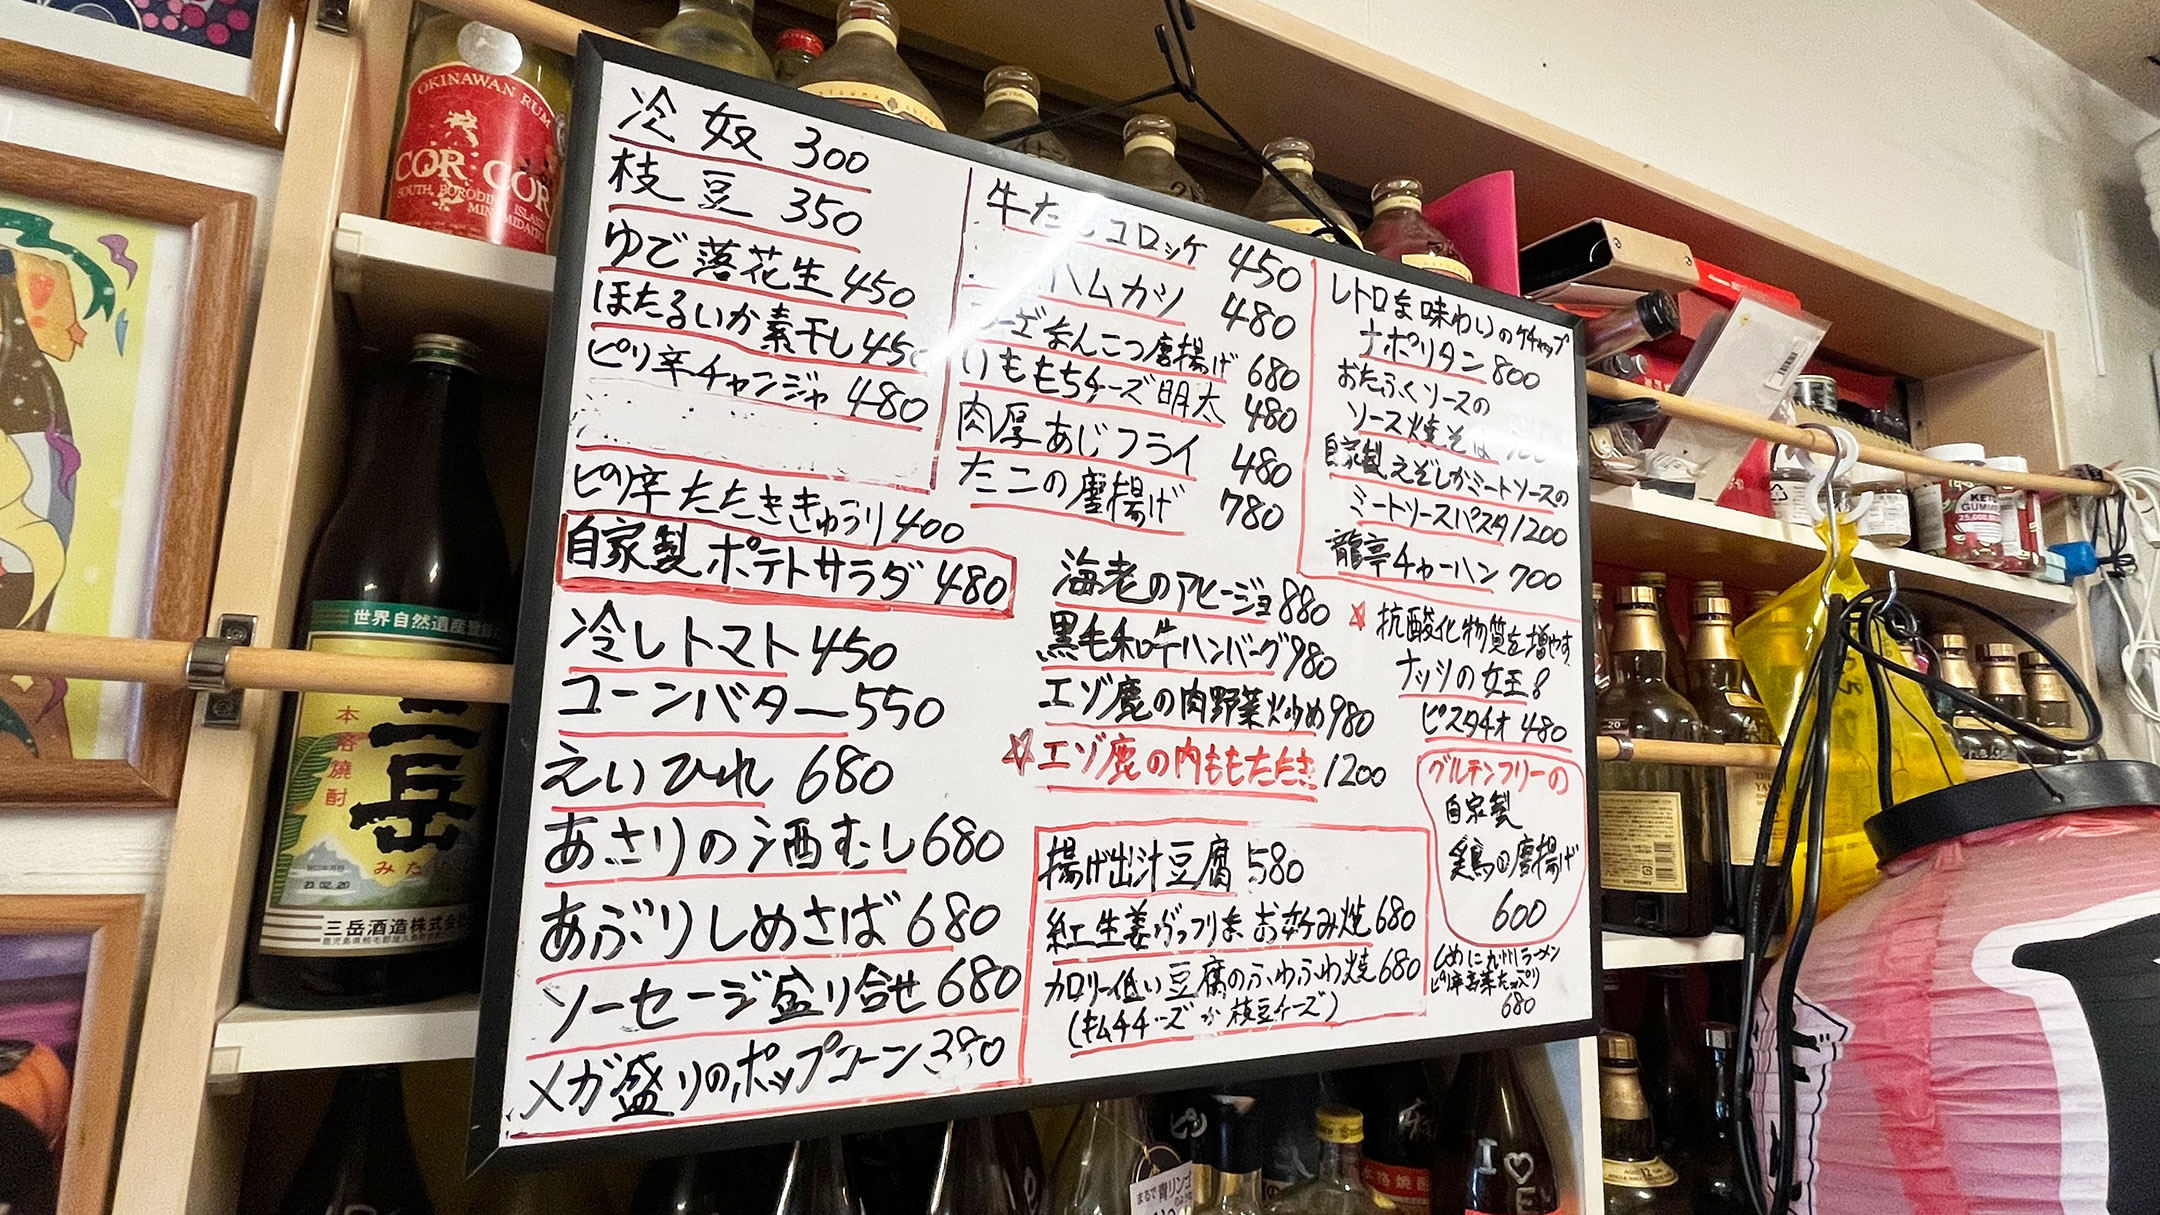 冷奴 300
枝豆 350
ゆで落花生 450
ほたるいか素干し 450
ピリ辛チャンジャ 480
ピリ辛たたききゅうり 400
自家製ポテトサラダ 480
冷しトマト 450
コーンバター 550
えいひれ 680
あさりの酒むし 680
あぶりしめさば 680
ソーセージ盛り合せ 680
メガ盛りのポップコーン 380
牛たんコロッケ 450
ハムカツ 480
なんこつ唐揚げ 680
いももちチーズ明太 480
肉厚あじフライ 480
たこの唐揚げ 780
海老のアヒージョ 880
黒毛和牛ハンバーグ 980
エゾ鹿の肉野菜炒め 980
☆エゾ鹿の内ももたたき 1200
揚げ出汁豆腐 580
紅生姜がっつりなお好み焼 680
カロリー低い豆腐のふわふわ焼 680
(キムチチーズか枝豆チーズ)
レトロな味わいのケチャップ
ナポリタン 800
おたふくソースの
ソース焼そば
自家製えぞしかミートソースの
ミートソースパスタ 1200
龍亭チャーハン 700
☆抗酸化物質を増やす
ナッツの女王
ピスタチオ 480
グルテンフリーの
自家製
鶏の唐揚げ
600
〆に九州ラーメン
ピリ辛高菜たっぷり
680
OKINAWAN RUM
COR COR
世界自然遺産登録
本格焼酎
三岳
三岳酒造株式会
23.02.20
KETO
GUMM
まるで青リンゴ
I ♡